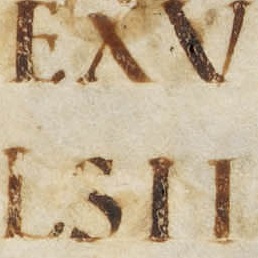 EXV
LSII